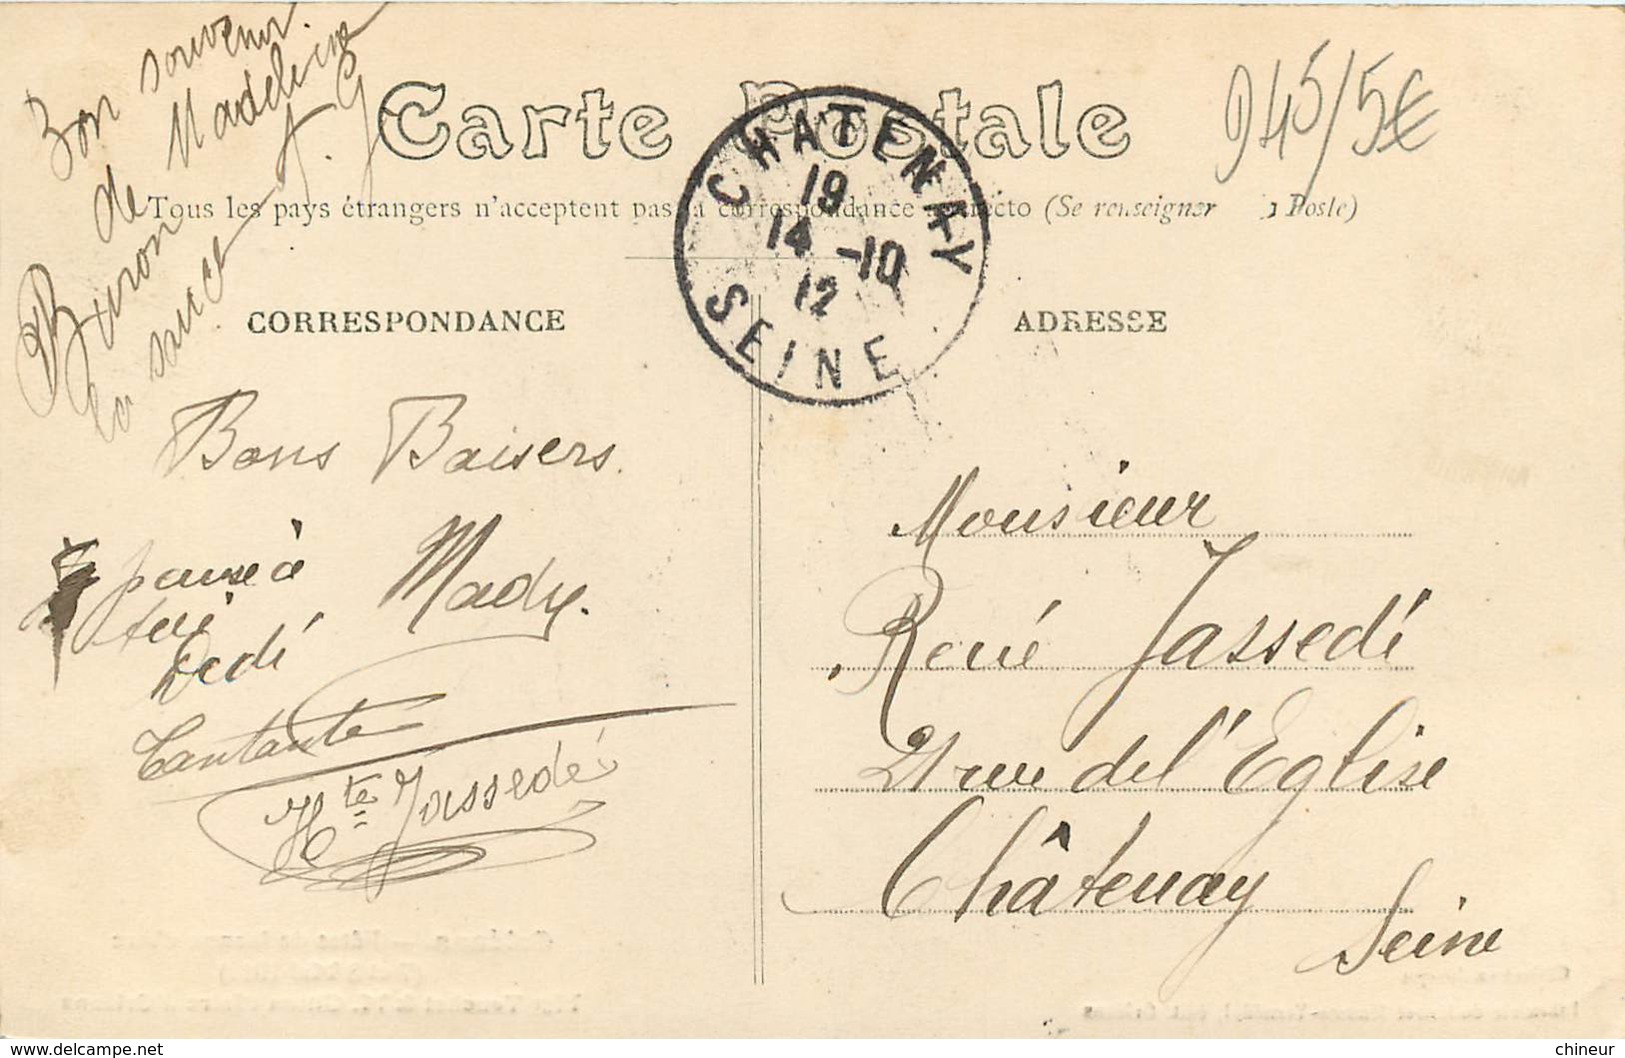 Bon souvenir
de Madeleine
Buron A. G
la sauce
945/5€
Carte Postale
Tous les pays étrangers n'acceptent pas la correspondance au recto (Se renseigner à la Poste)
CHATENAY
19
14 -10
12
SEINE
CORRESPONDANCE
ADRESSE
Bons Baisers.
Mady.
pense à
toi
Dédé
Tantante
Hte Jassedé
Monsieur
René Jassedé
21 rue de l'Eglise
Châtenay
Seine
chineur